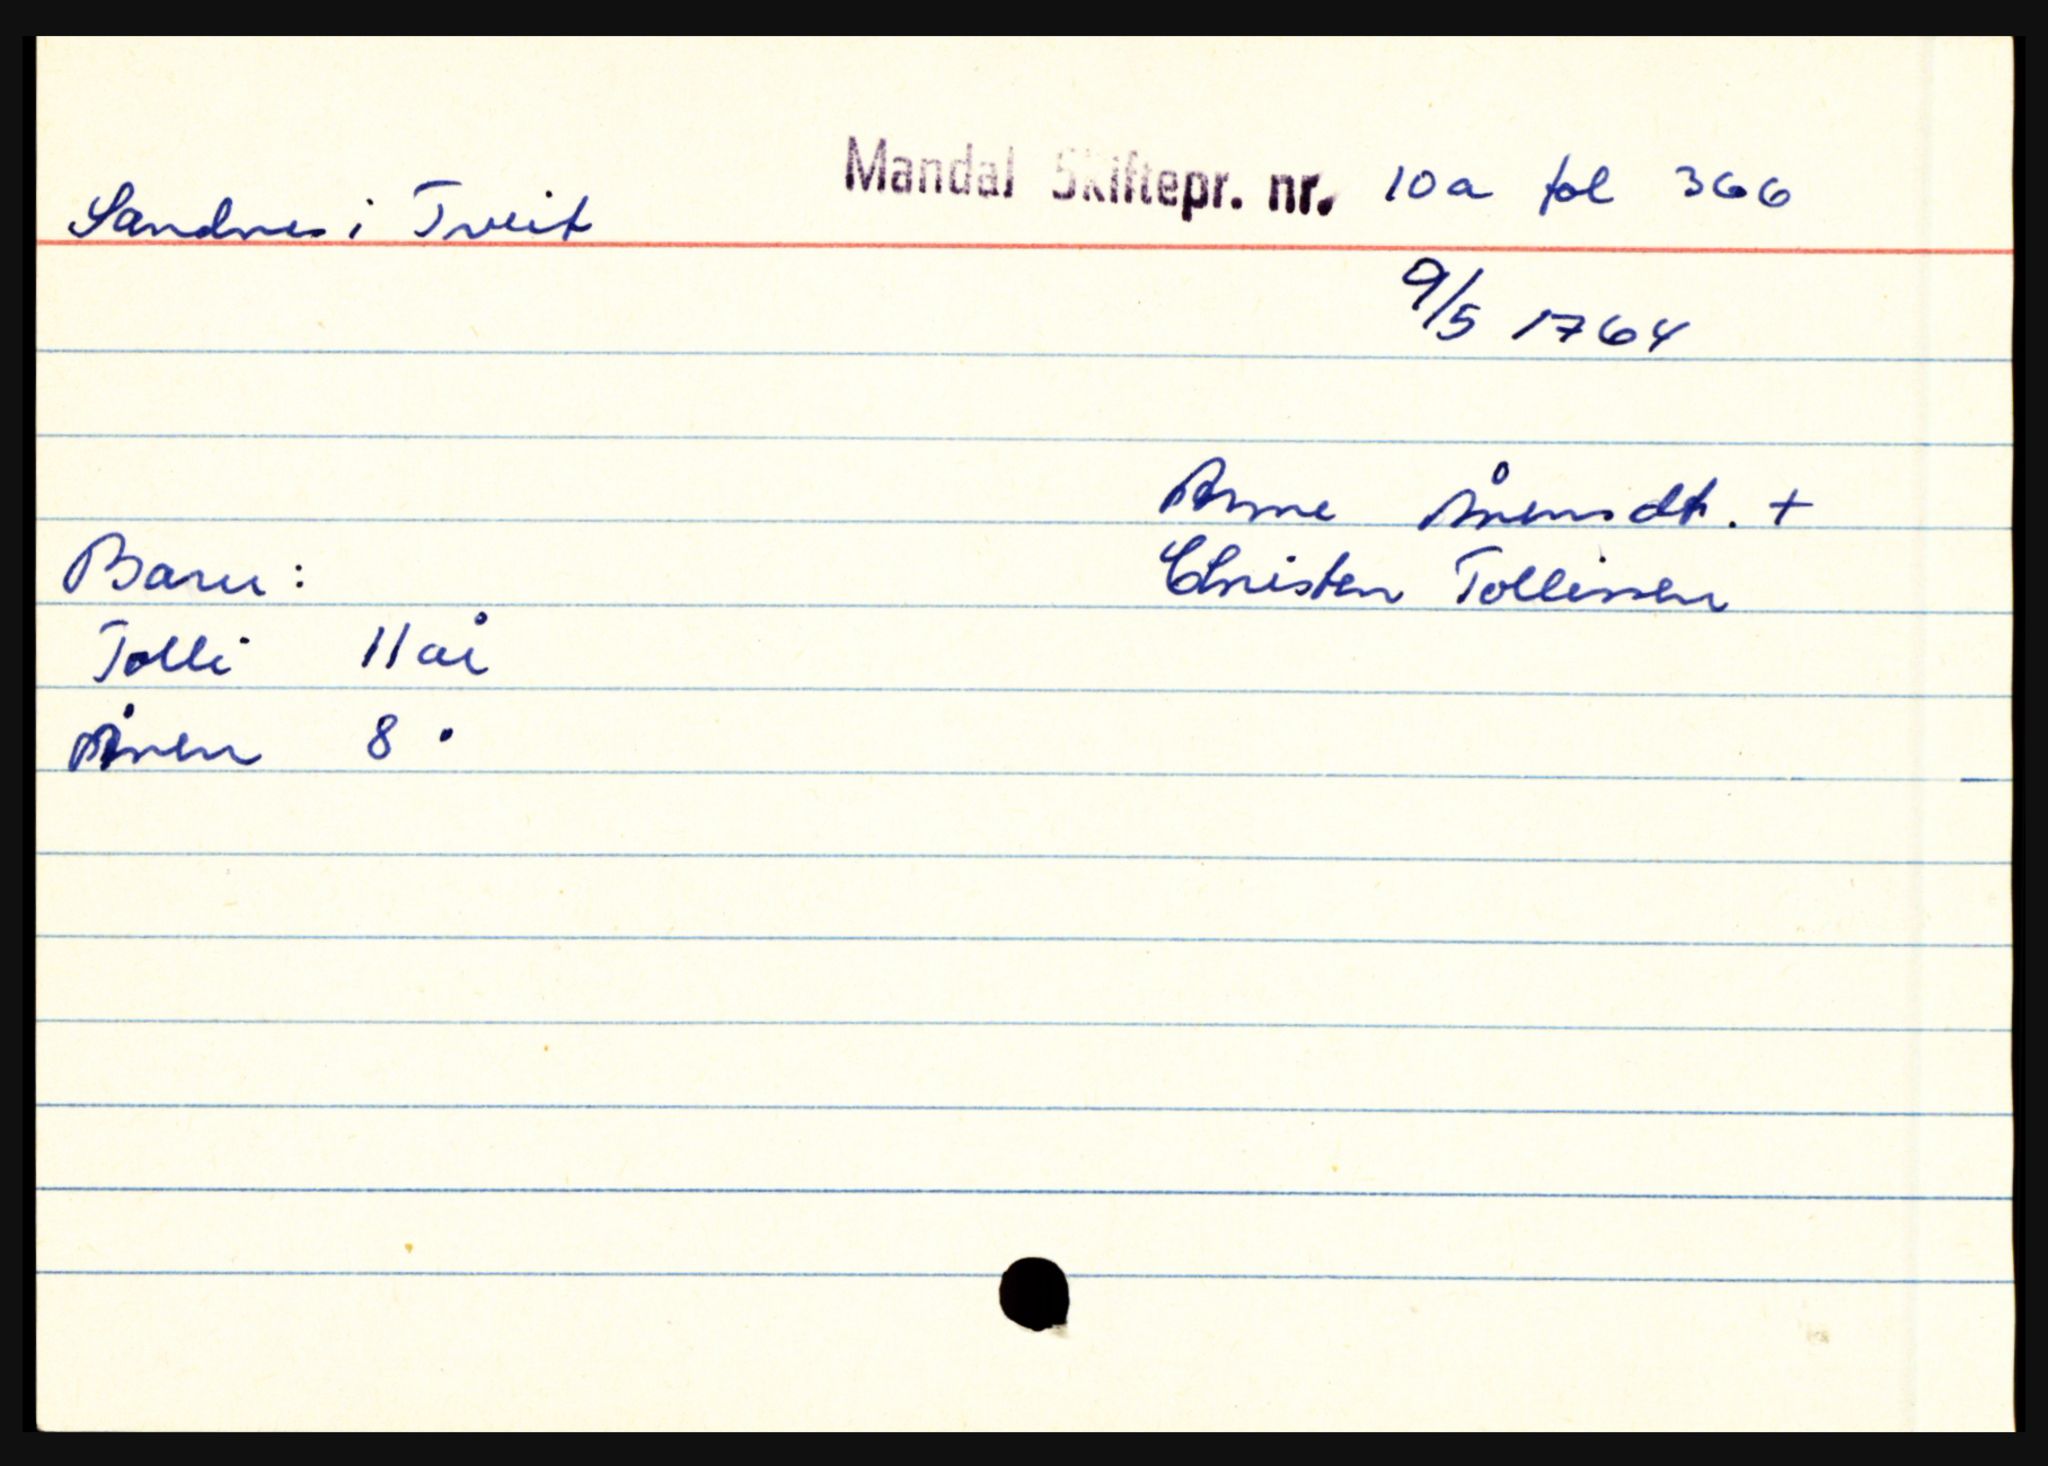 Mandal Skiftepr. nr. 10a fol 366
Sandnes i Tveit
9/5 1764
Anne Ånensdt. +
Barn:
Christen Tollissen
Tolli 11 år
Ånen 8 "